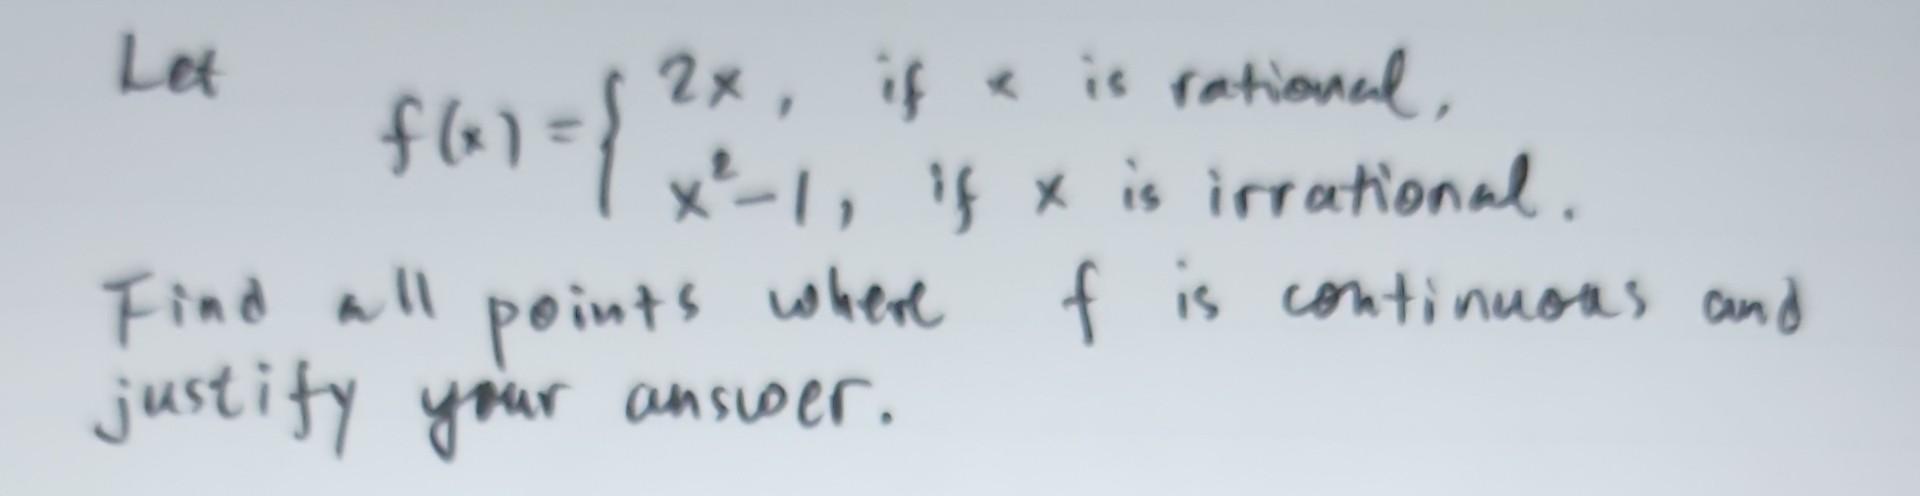 Let
f(x) = { 2x, if x is rational,
x²-1, if x is irrational.
Find all points where f is continuous and
justify your answer.